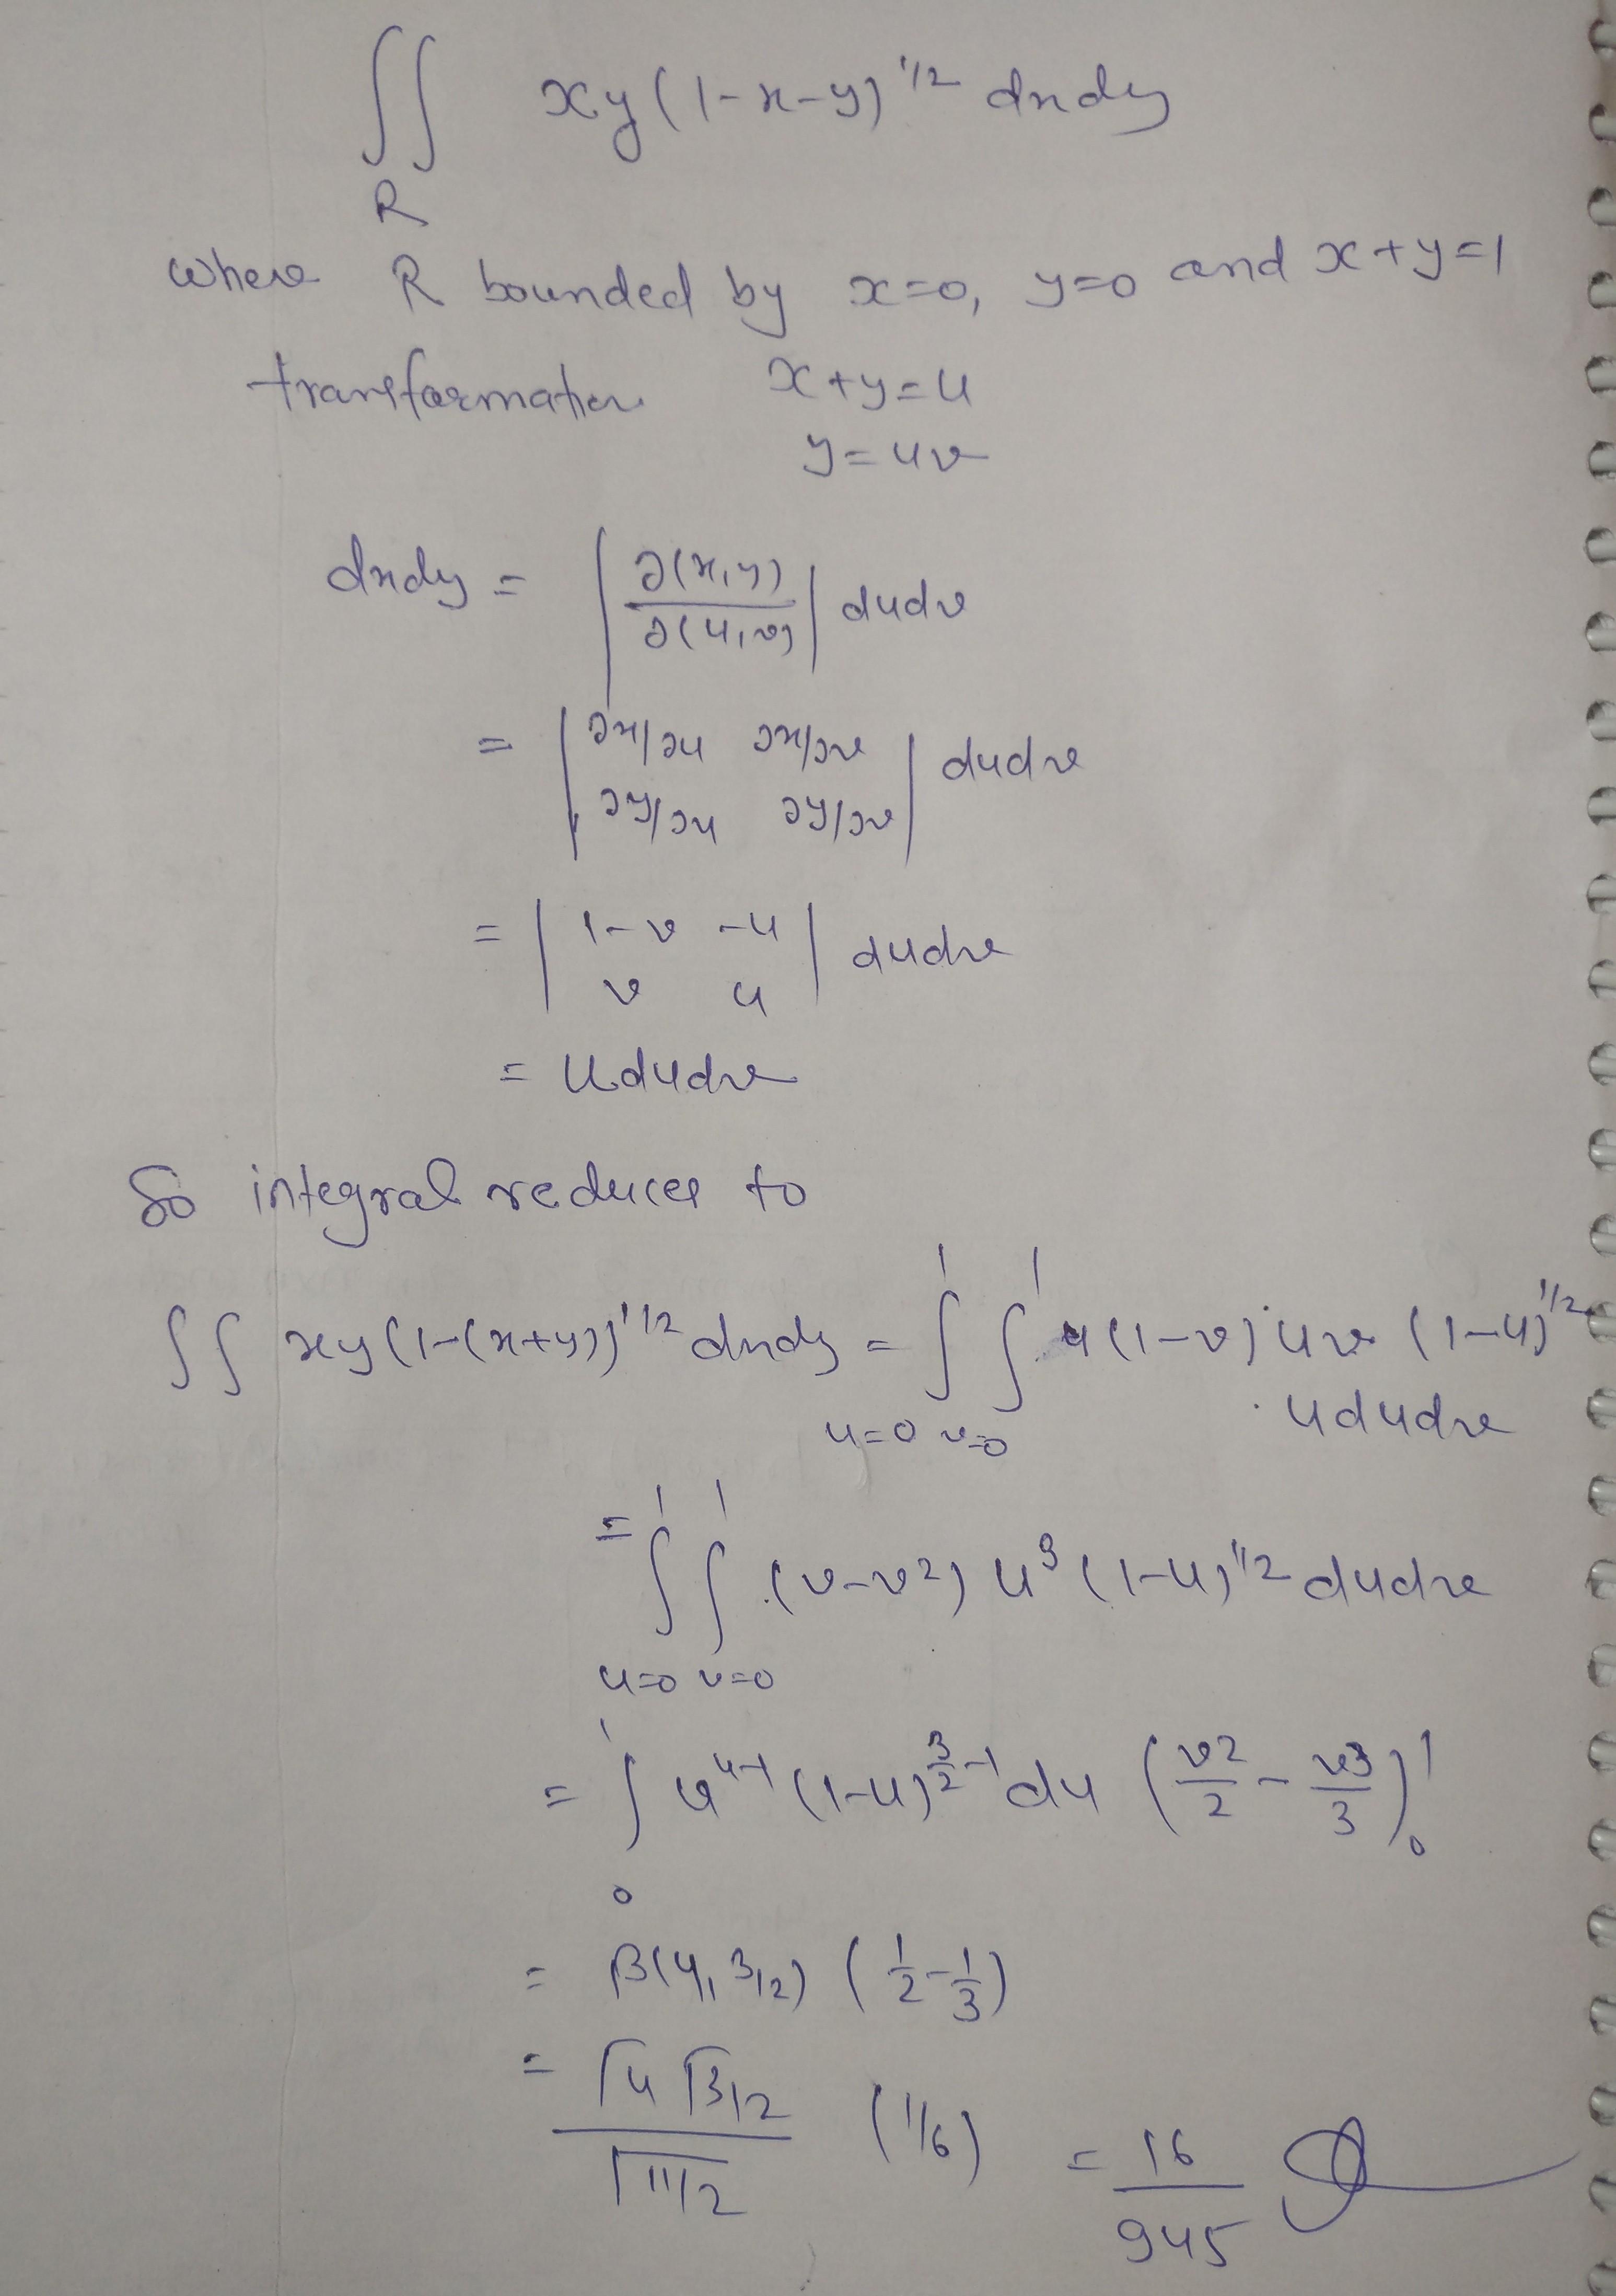 ∬ xy(1-x-y)^1/2 dxdy
R
where R bounded by x=0, y=0 and x+y=1
transformation x+y=u
y=uv
dxdy = |∂(x,y)/∂(u,v)| dudv
= |∂x/∂u ∂x/∂v
∂y/∂u ∂y/∂v| dudv
= |1-v -u
v u| dudv
= ududv
So integral reduces to
∬ xy(1-(x+y))^1/2 dxdy = ∫_{u=0}^{1} ∫_{v=0}^{1} u(1-v) uv (1-u)^1/2
· ududv
= ∫_{u=0}^{1} ∫_{v=0}^{1} (v-v²) u³ (1-u)^1/2 dudv
= ∫_0^1 u^{4-1} (1-u)^{3/2-1} du (v²/2 - v³/3)_0^1
= β(4, 3/2) (1/2 - 1/3)
= Γ4 Γ3/2 / Γ11/2 (1/6) = 16/945